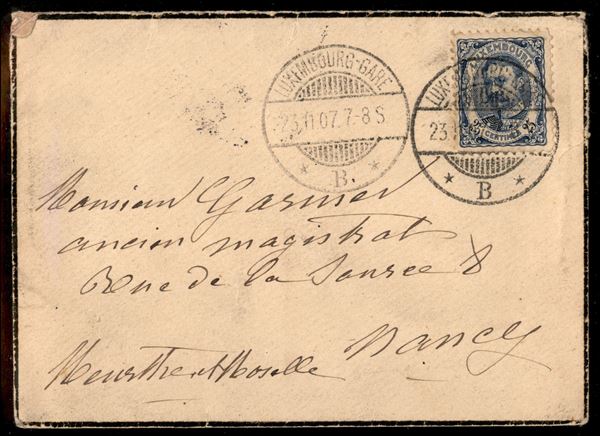 LUXEMBOURG
CENTIMES
LUXEMBOURG-GARE
23.11.07. 7-8 S
B
B
Monsieur Garnier
ancien magistrat
Rue de la Source 8
Nancy
Meurthe et Moselle